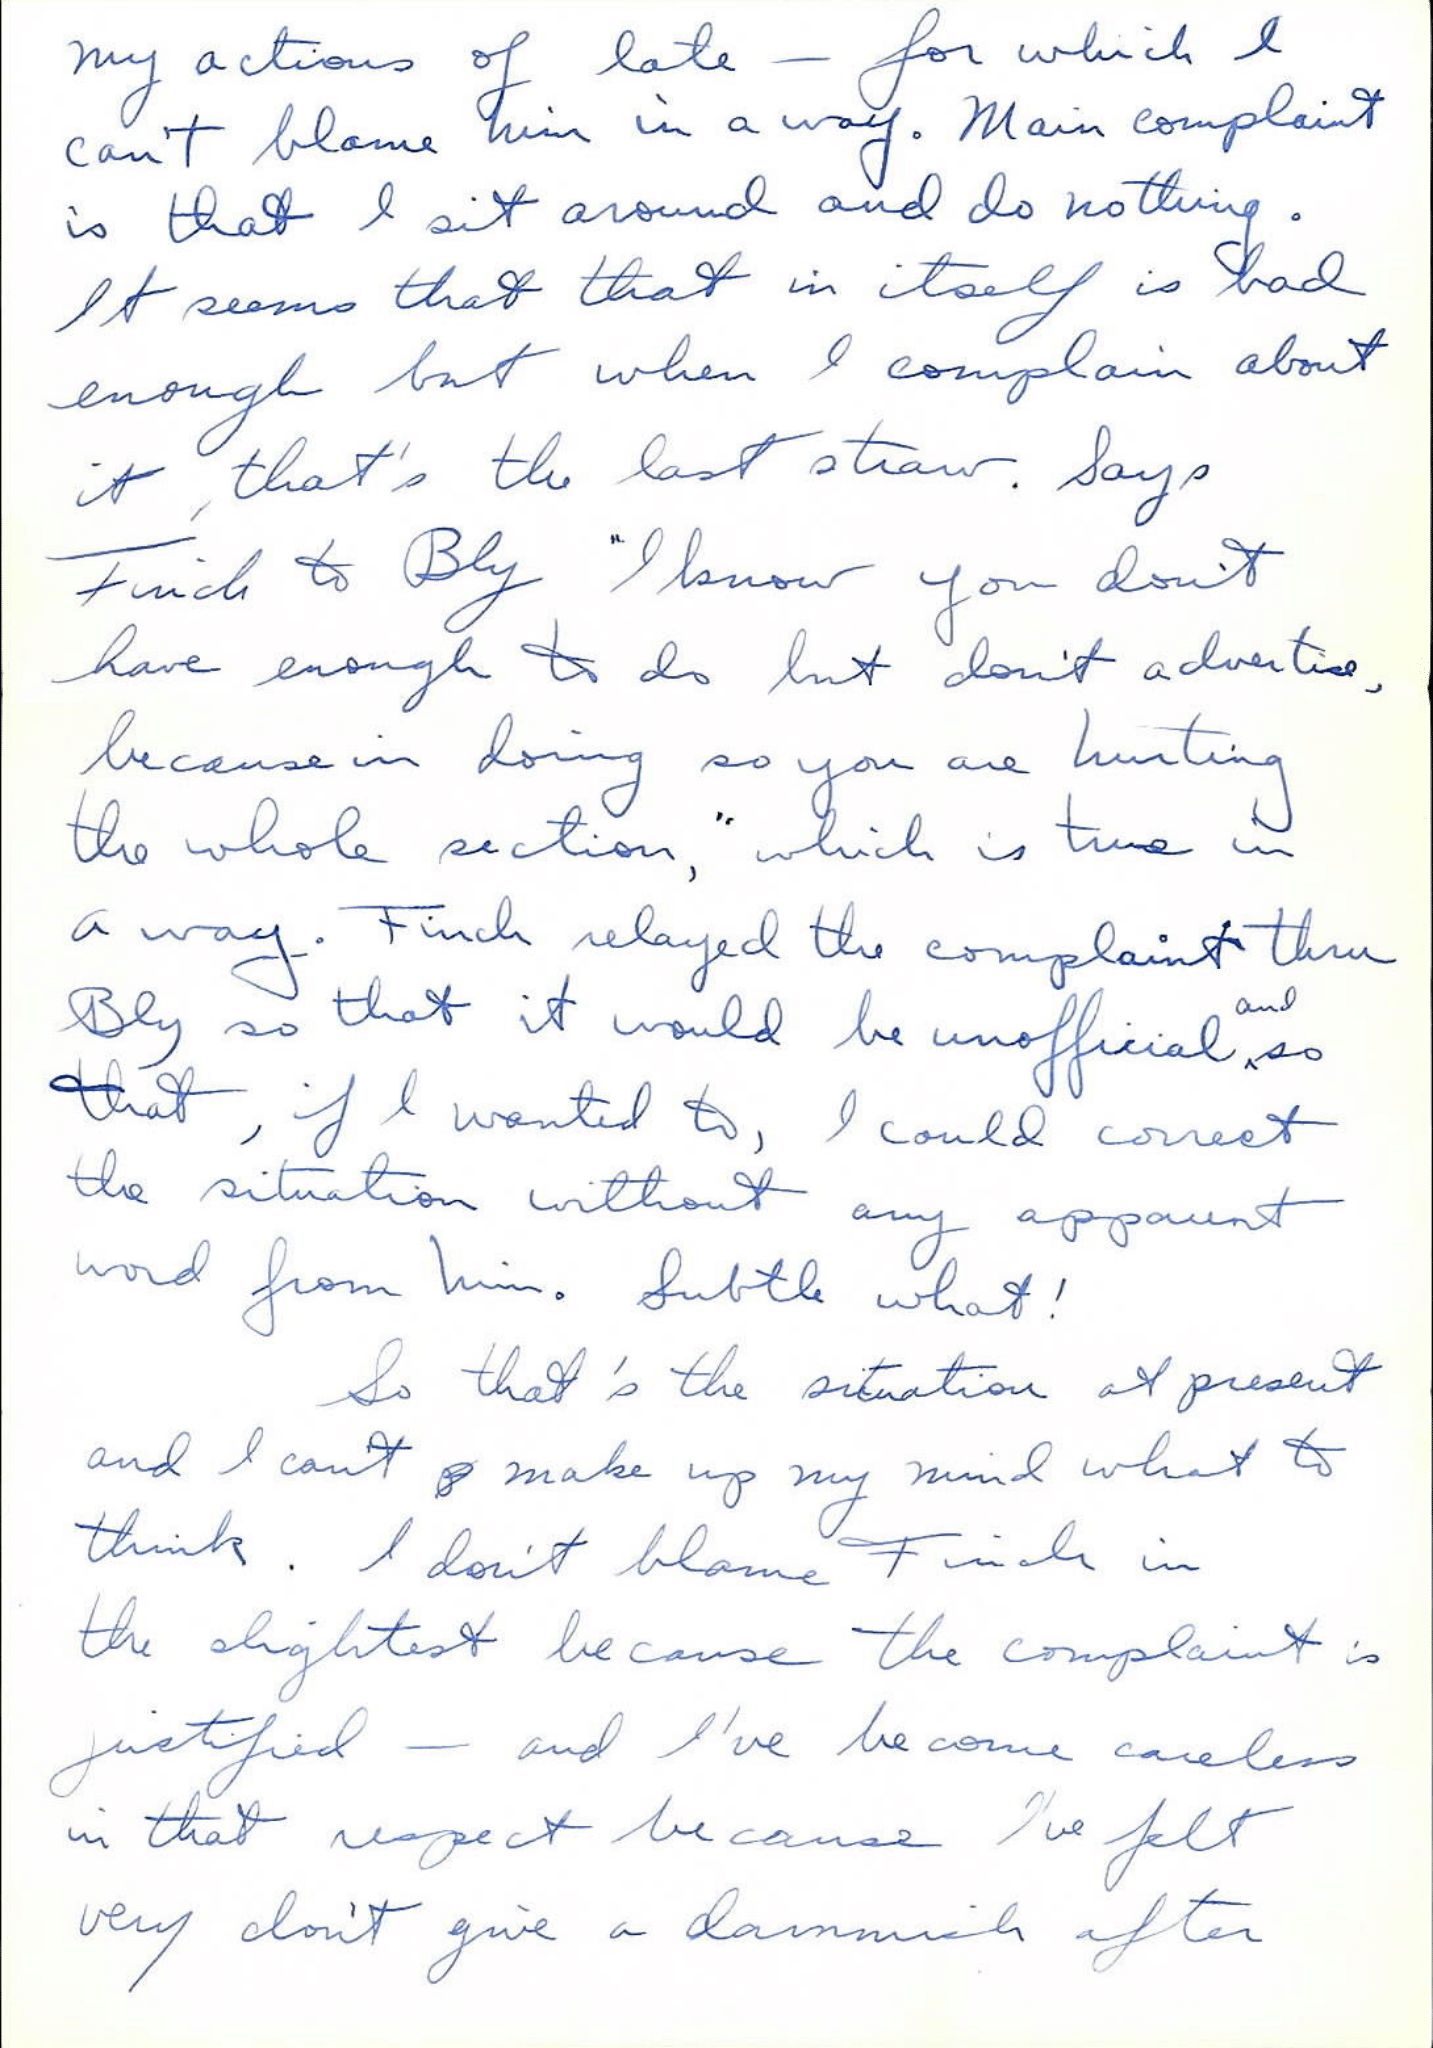 my actions of late — for which I
can't blame him in a way. Main complaint
is that I sit around and do nothing.
It seems that that in itself is bad
enough but when I complain about
it, that's the last straw. Says
Finch to Bly "I know you don't
have enough to do but don't advertise,
because in doing so you are hurting
the whole section," which is true in
a way. Finch relayed the complaint thru
Bly so that it would be unofficial, and so
that, if I wanted to, I could correct
the situation without any apparent
word from him. Subtle what!
So that's the situation at present
and I can't make up my mind what to
think. I don't blame Finch in
the slightest because the complaint is
justified — and I've become careless
in that respect because I've felt
very don't give a dammish after